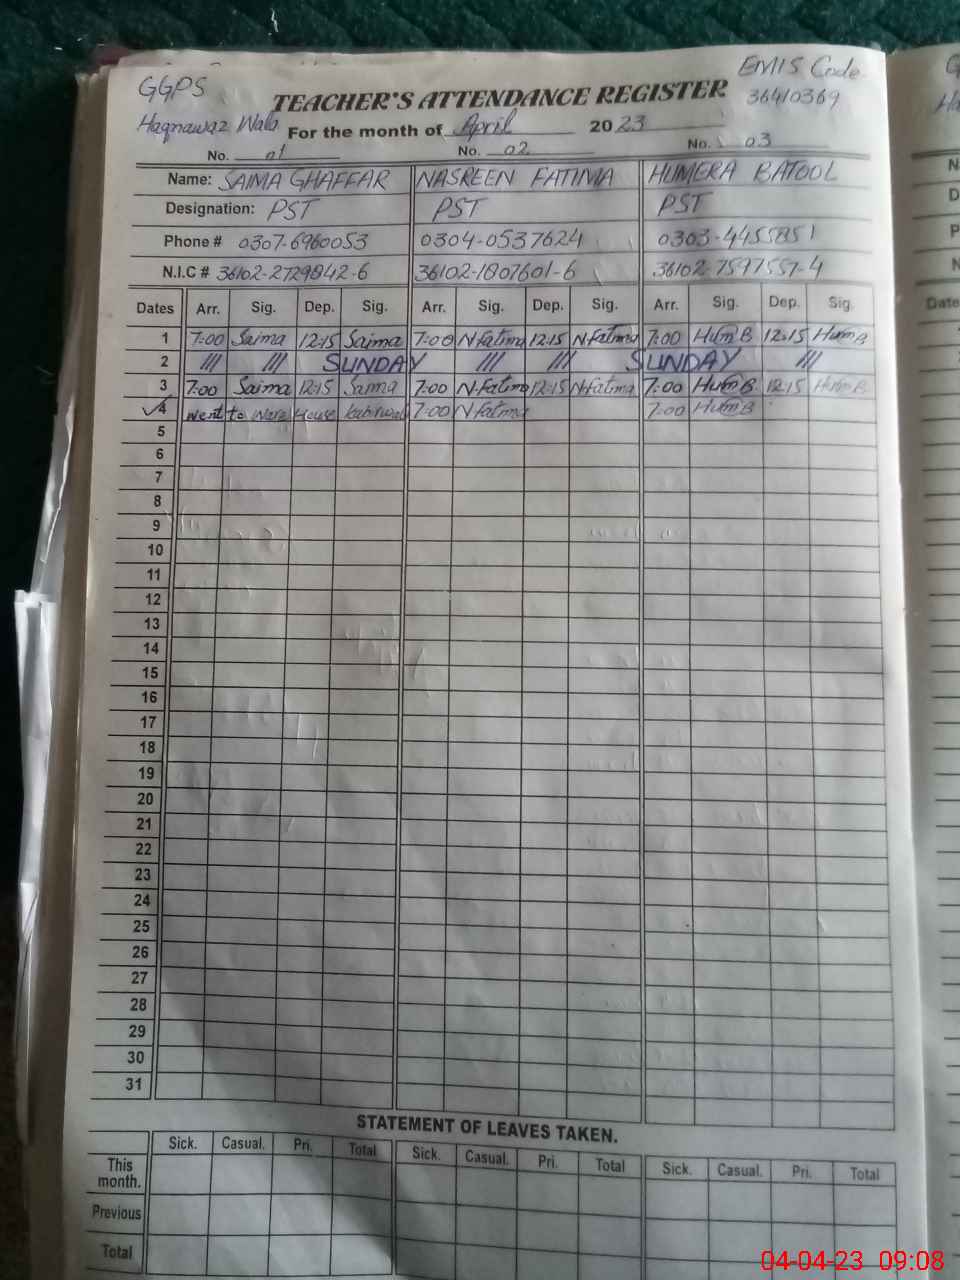 GGPS
EMIS Code
TEACHER'S ATTENDANCE REGISTER
36410369
Haqnawaz Wala For the month of April 2023
No. 01 No. 02 No. 03
Name: SAIMA GHAFFAR NASREEN FATIMA HUMERA BATOOL
Designation: PST PST PST
Phone # 0307-6960053 0304-0537624 0303-4455851
N.I.C # 36102-2729842-6 36102-1807601-6 36102-7597557-4
Dates Arr. Sig. Dep. Sig. Arr. Sig. Dep. Sig. Arr. Sig. Dep. Sig.
1 7:00 Saima 12:15 Saima 7:00 N.Fatima 12:15 N.Fatima 7:00 Hum B 12:15 Hum B
2 /// /// SUNDAY /// /// SUNDAY ///
3 7:00 Saima 12:15 Saima 7:00 N.Fatima 12:15 N.Fatima 7:00 Hum B 12:15 Hum B
4 went to Ware House Kabirwala 7:00 N.Fatima 7:00 Hum B
5
6
7
8
9
10
11
12
13
14
15
16
17
18
19
20
21
22
23
24
25
26
27
28
29
30
31
STATEMENT OF LEAVES TAKEN.
Sick. Casual. Pri. Total Sick. Casual. Pri. Total Sick. Casual. Pri. Total
This month.
Previous
Total
04-04-23 09:08